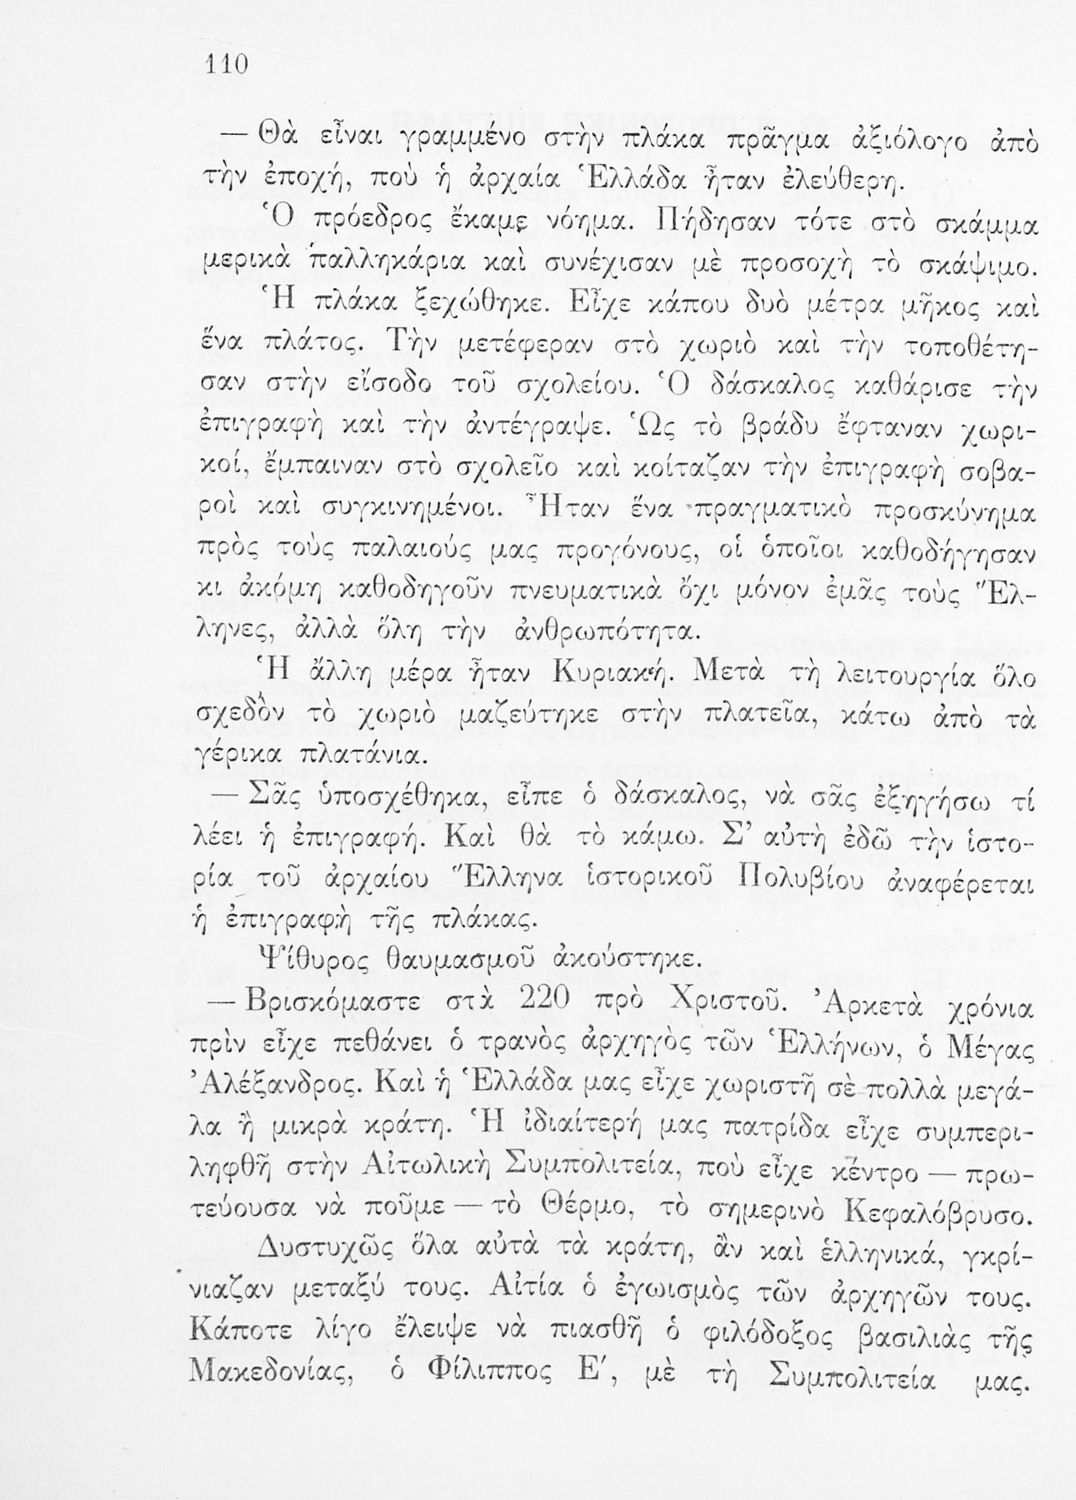 110
— Θὰ εἶναι γραμμένο στὴν πλάκα πρᾶγμα ἀξιόλογο ἀπὸ
τὴν ἐποχή, ποὺ ἡ ἀρχαία Ἑλλάδα ἦταν ἐλεύθερη.
Ὁ πρόεδρος ἔκαμε νόημα. Πήδησαν τότε στὸ σκάμμα
μερικὰ παλληκάρια καὶ συνέχισαν μὲ προσοχὴ τὸ σκάψιμο.
Ἡ πλάκα ξεχώθηκε. Εἶχε κάπου δυὸ μέτρα μῆκος καὶ
ἕνα πλάτος. Τὴν μετέφεραν στὸ χωριὸ καὶ τὴν τοποθέτη-
σαν στὴν εἴσοδο τοῦ σχολείου. Ὁ δάσκαλος καθάρισε τὴν
ἐπιγραφὴ καὶ τὴν ἀντέγραψε. Ὡς τὸ βράδυ ἔφταναν χωρι-
κοί, ἔμπαιναν στὸ σχολεῖο καὶ κοίταζαν τὴν ἐπιγραφὴ σοβα-
ροὶ καὶ συγκινημένοι. Ἦταν ἕνα πραγματικὸ προσκύνημα
πρὸς τοὺς παλαιούς μας προγόνους, οἱ ὁποῖοι καθοδήγησαν
κι ἀκόμη καθοδηγοῦν πνευματικὰ ὄχι μόνον ἐμᾶς τοὺς Ἕλ-
ληνες, ἀλλὰ ὅλη τὴν ἀνθρωπότητα.
Ἡ ἄλλη μέρα ἦταν Κυριακή. Μετὰ τὴ λειτουργία ὅλο
σχεδὸν τὸ χωριὸ μαζεύτηκε στὴν πλατεῖα, κάτω ἀπὸ τὰ
γέρικα πλατάνια.
— Σᾶς ὑποσχέθηκα, εἶπε ὁ δάσκαλος, νὰ σᾶς ἐξηγήσω τί
λέει ἡ ἐπιγραφή. Καὶ θὰ τὸ κάμω. Σ’ αὐτὴ ἐδῶ τὴν ἱστο-
ρία τοῦ ἀρχαίου Ἕλληνα ἱστορικοῦ Πολυβίου ἀναφέρεται
ἡ ἐπιγραφὴ τῆς πλάκας.
Ψίθυρος θαυμασμοῦ ἀκούστηκε.
— Βρισκόμαστε στὰ 220 πρὸ Χριστοῦ. Ἀρκετὰ χρόνια
πρὶν εἶχε πεθάνει ὁ τρανὸς ἀρχηγὸς τῶν Ἑλλήνων, ὁ Μέγας
Ἀλέξανδρος. Καὶ ἡ Ἑλλάδα μας εἶχε χωριστῆ σὲ πολλὰ μεγά-
λα ἢ μικρὰ κράτη. Ἡ ἰδιαίτερή μας πατρίδα εἶχε συμπερι-
ληφθῆ στὴν Αἰτωλικὴ Συμπολιτεία, ποὺ εἶχε κέντρο — πρω-
τεύουσα νὰ ποῦμε — τὸ Θέρμο, τὸ σημερινὸ Κεφαλόβρυσο.
Δυστυχῶς ὅλα αὐτὰ τὰ κράτη, ἂν καὶ ἑλληνικά, γκρί-
νιαζαν μεταξύ τους. Αἰτία ὁ ἐγωισμὸς τῶν ἀρχηγῶν τους.
Κάποτε λίγο ἔλειψε νὰ πιασθῆ ὁ φιλόδοξος βασιλιὰς τῆς
Μακεδονίας, ὁ Φίλιππος Ε′, μὲ τὴ Συμπολιτεία μας.